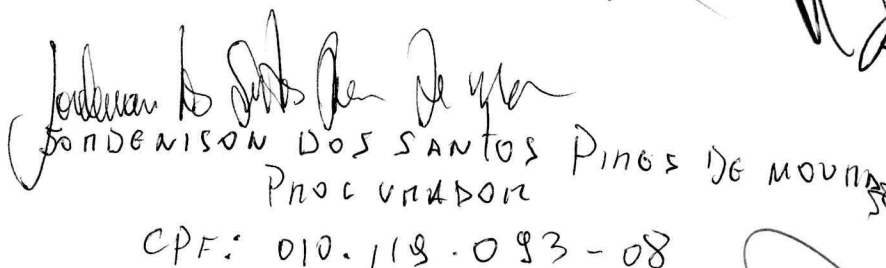 JORDENISON DOS SANTOS PIRES DE MOURA
PROCURADOR
CPF: 010.119.093-08